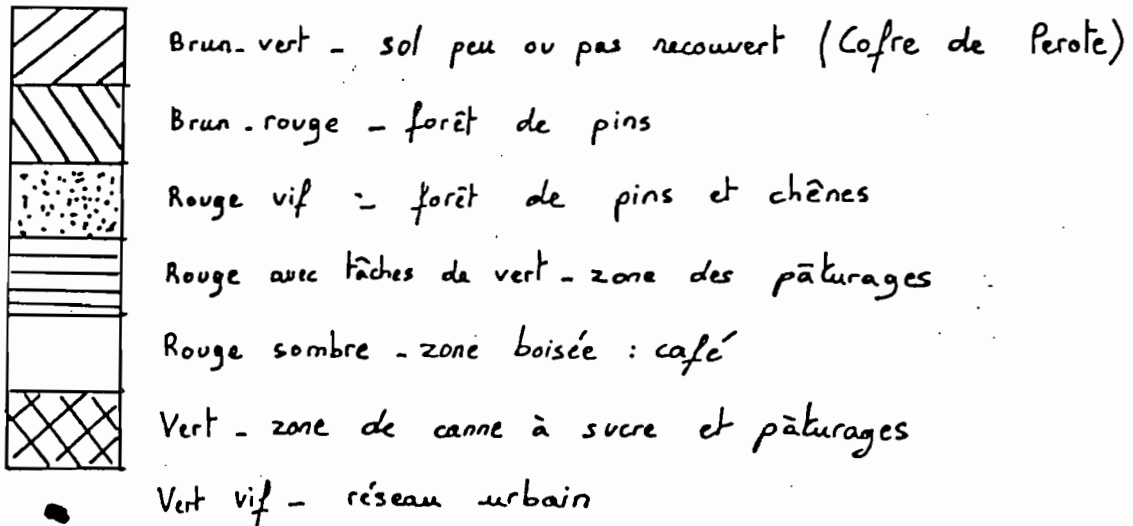 Brun-vert - sol peu ou pas recouvert (Cofre de Perote)
Brun-rouge - forêt de pins
Rouge vif - forêt de pins et chênes
Rouge avec tâches de vert - zone des pâturages
Rouge sombre - zone boisée : café
Vert - zone de canne à sucre et pâturages
Vert vif - réseau urbain